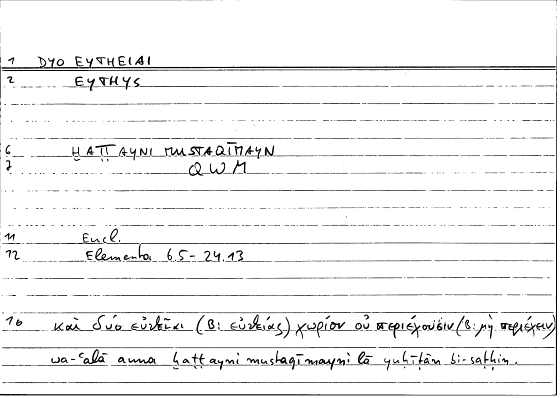 1 DYO EYTHEIAI
2 EYTHYS
6 ḪAṬṬAYNI MUSTAQĪMAYN
7 QWM
11 Eucl.
12 Elementa 6.5-24.13
16 καὶ δύο εὐθεῖαι (B: εὐθείας) χωρίον οὐ περιέχουσιν (B: μὴ περιέχειν)
wa-ʿalā anna ḫaṭṭayni mustaqīmayni lā yuḥīṭān bi-saṭḥin.